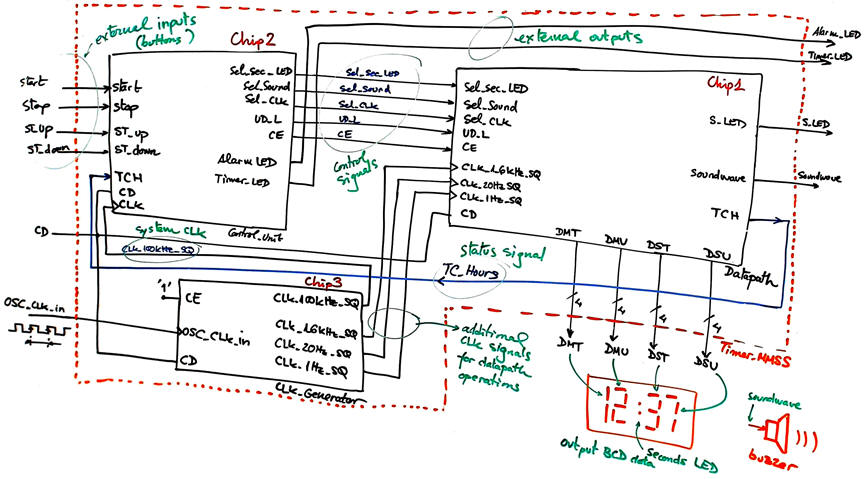 external inputs
(buttons)
Chip2
external outputs
Alarm_LED
Timer_LED
Chip1
start
stop
ST_up
ST_down
start
stop
ST_up
ST_down
TCH
CD
CLK
Sel_Sec_LED
Sel_Sound
Sel_CLK
UD_L
CE
Alarm_LED
Timer_LED
Control_Unit
Sel_Sec_LED
Sel_Sound
Sel_CLK
UD_L
CE
Control
signals
Sel_Sec_LED
Sel_Sound
Sel_CLK
UD_L
CE
CLK_1.6kHz_SQ
CLK_20Hz_SQ
CLK_1Hz_SQ
CD
S_LED
Soundwave
TCH
DMT
DMU
DST
DSU
Datapath
S_LED
Soundwave
CD
system CLK
CLK_100kHz_SQ
status signal
TC_Hours
Chip3
'1'
CE
OSC_CLK_in
CD
CLK_100kHz_SQ
CLK_1.6kHz_SQ
CLK_20Hz_SQ
CLK_1Hz_SQ
CLK_Generator
OSC_CLK_in
additional
CLK signals
for datapath
operations
4
4
4
4
Timer_MMSS
DMT
DMU
DST
DSU
12:37
output BCD
data
seconds LED
soundwave
buzzer